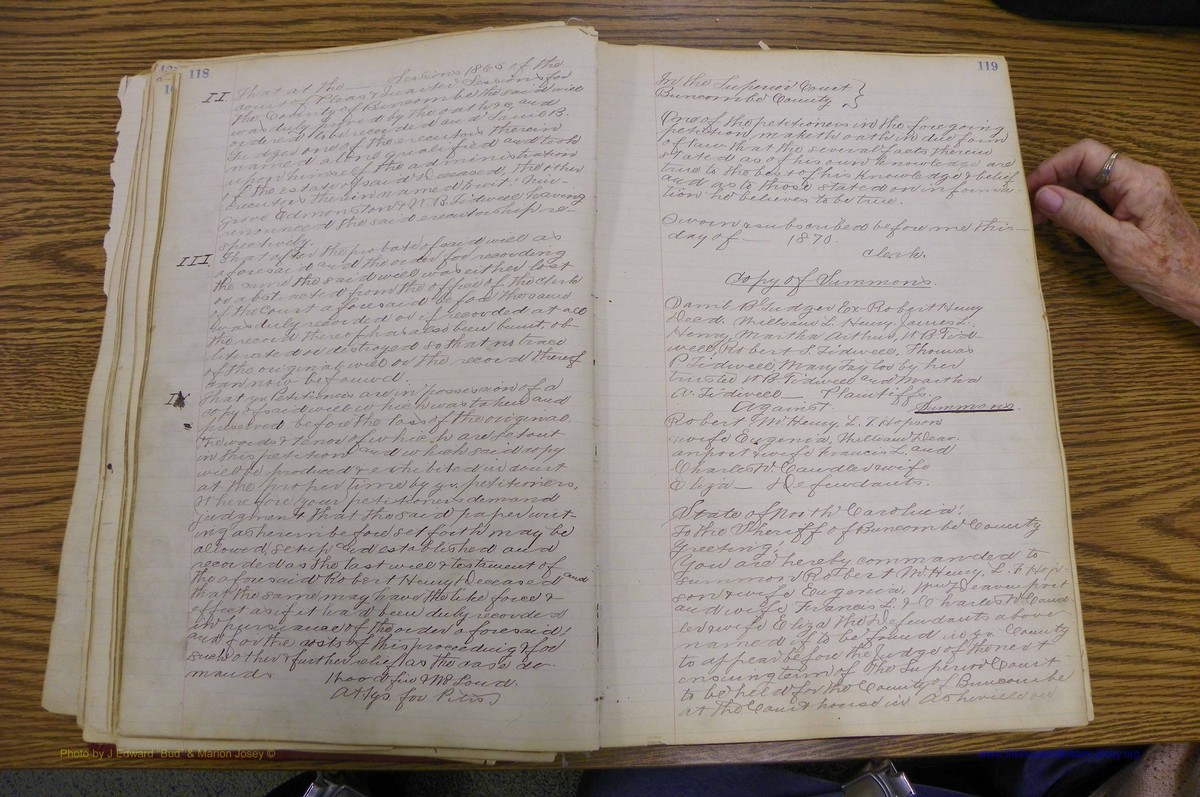 118
II That at the ___ Sessions 1865 of the
Court of Pleas & Quarter Sessions for
the County of Buncombe the said will
was duly proved by the oath & and
ordered to be recorded and Daniel B.
Judges one of the executors therein
named alone qualified and took
upon himself the administration
of the estate of said deceased, the other
executors therein named to wit:
grove Edmonston & W. B. Tidwell having
renounced the said executorship re-
spectively.
III. That after the probate of said will as
aforesaid and the order for recording
the same the said will was either lost
or abstracted from the office of the clerk
of the Court aforesaid before the same
was duly recorded or if recorded at all
the record thereof has been burnt, ob-
literated or destroyed so that no trace
of the original will or the record thereof
can now be found.
IV That yr Petitioners are in possession of a
copy of said will which was taken and
preserved before the loss of the original.
The words & tenor of which are set out
in this petition and which said copy
will be produced & exhibited in court
at the proper time by yr. petitioners,
Wherefore your petitioners demand
judgment that the said paper writ-
ing as herein before set forth may be
allowed, set up and established and
recorded as the last will & testament of
the aforesaid Robert Henry Deceased and
that the same may have the like force &
effect as if it had been duly recorded
in pursuance of the order aforesaid;
and for the costs of this proceeding & for
such other & further relief as the case de-
mands.
Attys for Petrs
119
In the Superior Court }
Buncombe County }
One of the petitioners in the foregoing
petition, maketh oath in due form
of law that the several facts therein
stated as of his own knowledge are
true to the best of his knowledge & belief
and as to those stated on informa
tion he believes to be true.
Sworn & subscribed before me this —
day of — 1870.
Clerk.
Copy of Summons.
Danil B. Judger Ex. Robert Henry
Decd. William L. Henry James L.
Henry, Martha Arthur, W B Tid-
well, Robert S. Tidwell, Thomas
P Tidwell, Mary Taylor by her
trustee W B Tidwell and Martha
A. Tidwell — Plaintiffs.
Against Summons.
Robert M Henry, L. F Hopson
wife Eugenia, William Deav-
enport & wife Francis L. and
Charles W. Candler & wife
Eliza — Defendants.
State of North Carolina:
To the Sheriff of Buncombe County
Greeting;
You are hereby commanded to
Summon Robert M. Henry, L. F Hop-
son & wife Eugenia, Wm Deavenport
and wife Francis L. & Charles W Cand-
ler & wife Eliza the Defendants above
named if to be found in yr County
to appear before the Judge of the next
ensuing term of the Superior Court
to be held for the County of Buncombe
at the Court house in Asheville on
Photo by J Edward "Bud" & Marion Josey ©